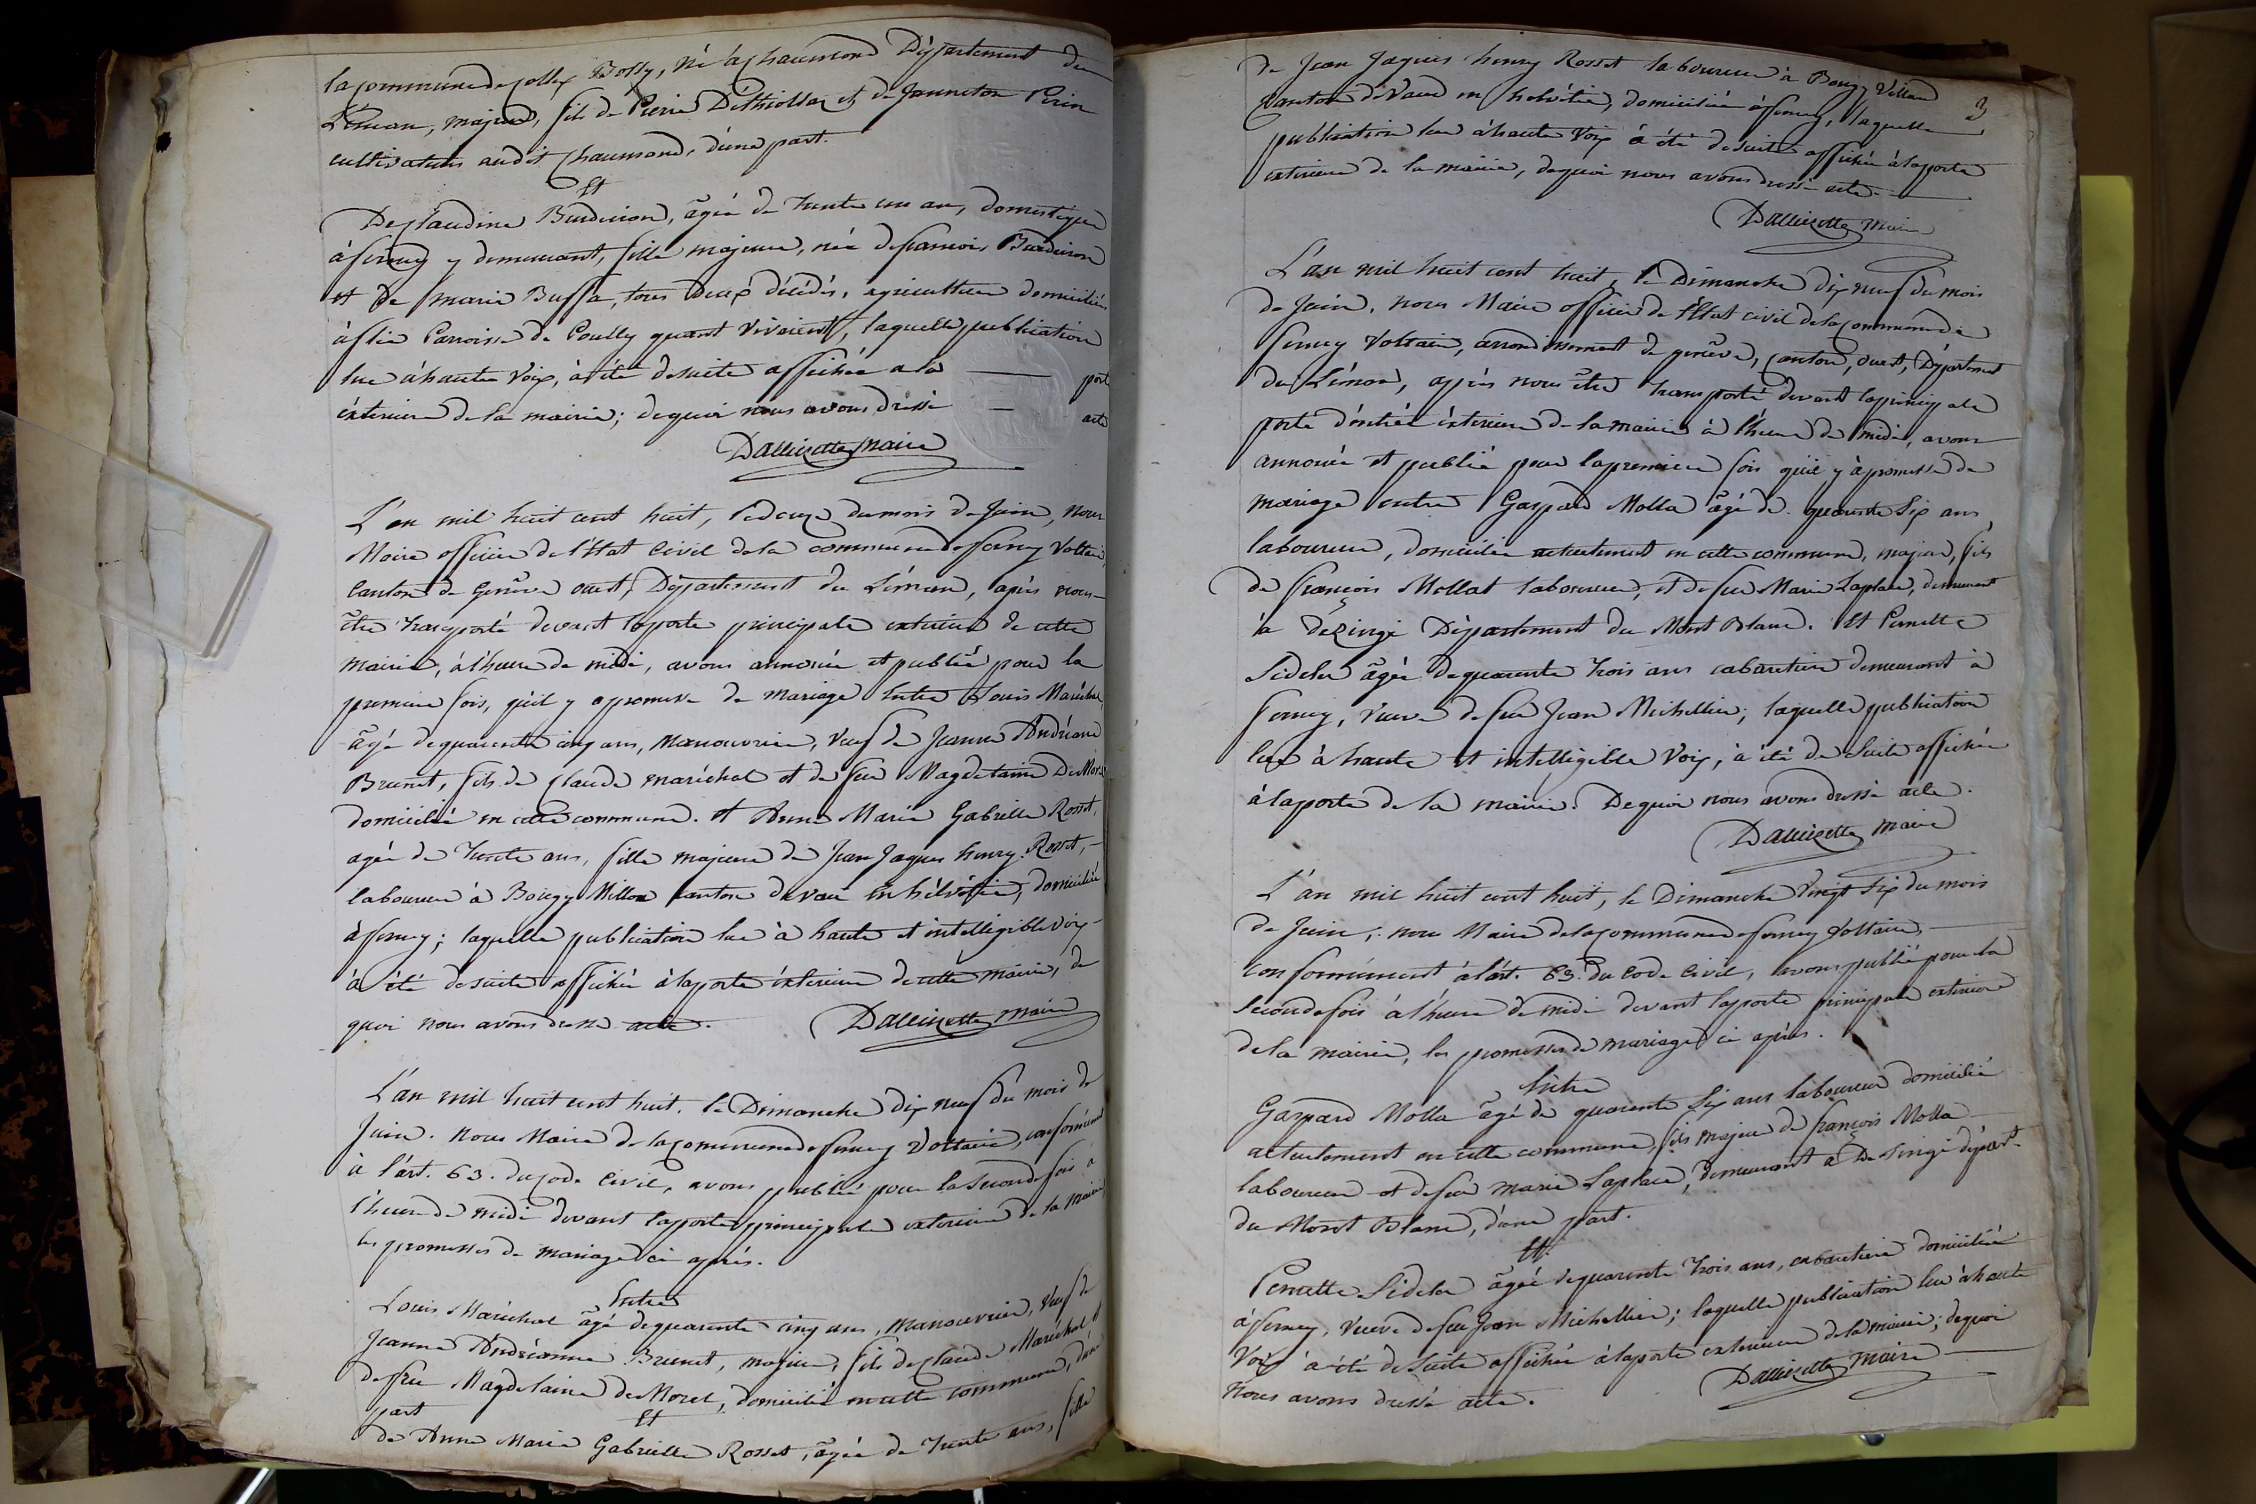 la commune de Collex Bossy, né à Chaumond Département du
Léman, majeur, fils de Pierre Déthiollaz et de Janneton Perin
cultivateurs audit Chaumond, d'une part.
Et
De Claudine Burdeiron, âgée de trente un ans, domestique
à ferney y demeurant, fille majeure, née de francois Burdeiron
et de marie Bussa, tous deux décédés, agriculteurs domiciliés
à Parroisse de Poully quant vivaient, laquelle publication
lue à haute Voix, à été desuite affichée a la — port
éxterieure de la mairie; dequoi nous avons dressé — acte
Dallizette maire
L'an mil huit cent huit, le douze du mois de Juin, nous
Maire officier de l'Etat Civil de la commune de ferney Voltaire,
Canton de Genêve ouest, Département du Léman, après nous
être transporté devant la porte principale exterieure de cette
mairie, à l'heure de midi, avons annoncé et publié pour la
premiere fois, qu'il y a promesse de mariage Entre Louis Maréchal
âgé de quarente cinq ans, manouvrier, veuf de Jeanne Andréane
Brunet, fils de Claude maréchal et de feue Magdelaine De Moret
domicilié en cette commune. et Anne Marie Gabrielle Rosset,
agée de trente ans, fille majeure de Jean Jaques henry Rosset,
laboureur à Bougy Millon canton de vau en hélvétie, domiciliée
à ferney; laquelle publication lue à haute et intelligible voix
à été desuite affichée à la porte éxterieure de cette mairie, de
quoi nous avons dressé acte. Dallizette maire
L'an mil huit cent huit. le Dimanche dix neuf du mois de
Juin. Nous Maire de la commune de ferney Voltaire, conformément
à l'art. 63. du Code Civil, avons publié pour la Seconde fois à
l'heure de midi devant la porte principale exterieure de la mairie
les promesses de mariage ci après.
Entre
Louis Maréchal âgé de quarente cinq ans, manouvrier, veuf de
Jeanne Andréanne Brunet, majeur, fils de Claude Maréchal et
de feue Magdelaine de Moret, domicilié en cette commune, d'une
part
Et
de Anne Marie Gabrielle Rosset, agée de trente ans, fille
3
de Jean Jaques henry Rosset laboureur à Bougy Villard
Canton de Vaud en helvétie, domiciliée à ferney, laquelle
publication lue à haute Voix à été desuite affichée à la porte
exterieure de la mairie, dequoi nous avons dressé acte.
Dallizette maire
L'an mil huit cent huit, le Dimanche dix neuf du mois
de Juin, nous Maire officier de l'Etat civil de la Commune de
ferney Voltaire, arrondissement de genêve, Canton, ouest, Département
du Léman, après nous être transporté devant la principale
porte d'entrée éxterieure de la mairie à l'heure de midi, avons
annoncé et publié pour la premiere fois qu'il y à promesse de
mariage entre Gaspard Molla âgé de quarente Six ans
laboureur, domicilié actuelement en cette commune, majeur, fils
de françois Mollat laboureur, et de feue Marie Laplace, demeurant
à dezingé Département du Mont Blanc. Et Pernette
Sideler âgée de quarente trois ans cabaretiere demeurant à
ferney, Veuve de feu Jean Michellier; laquelle publication
lue à haute et intelligible Voix, à été de Suite affichée
à la porte de la mairie. De quoi nous avons dressé acte.
Dallizette maire
L'an mil huit cent huit, le Dimanche Vingt Six du mois
de Juin, nous Maire de la commune de ferney Voltaire,
conformément à l'art. 63. du Code Civil, avons publié pour la
Seconde fois à l'heure de midi devant la porte principale exterieure
de la mairie, les promesses de mariage ci après.
Entre
Gaspard Molla âgé de quarente Six ans laboureur domicilié
actuelement en cette commune, fils majeur de françois Molla
laboureur et de feue marie Laplace, demeurant à De Singé départ.
du Mont Blanc, d'une part.
Et
Pernette Sideler âgée de quarente trois ans, cabaretiere domiciliée
à ferney, veuve de feu Jean Michellier; laquelle publication lue à haute
Voix à été de Suite affichée à la porte exterieure de la mairie; dequoi
Nous avons dressé acte. Dallizette maire